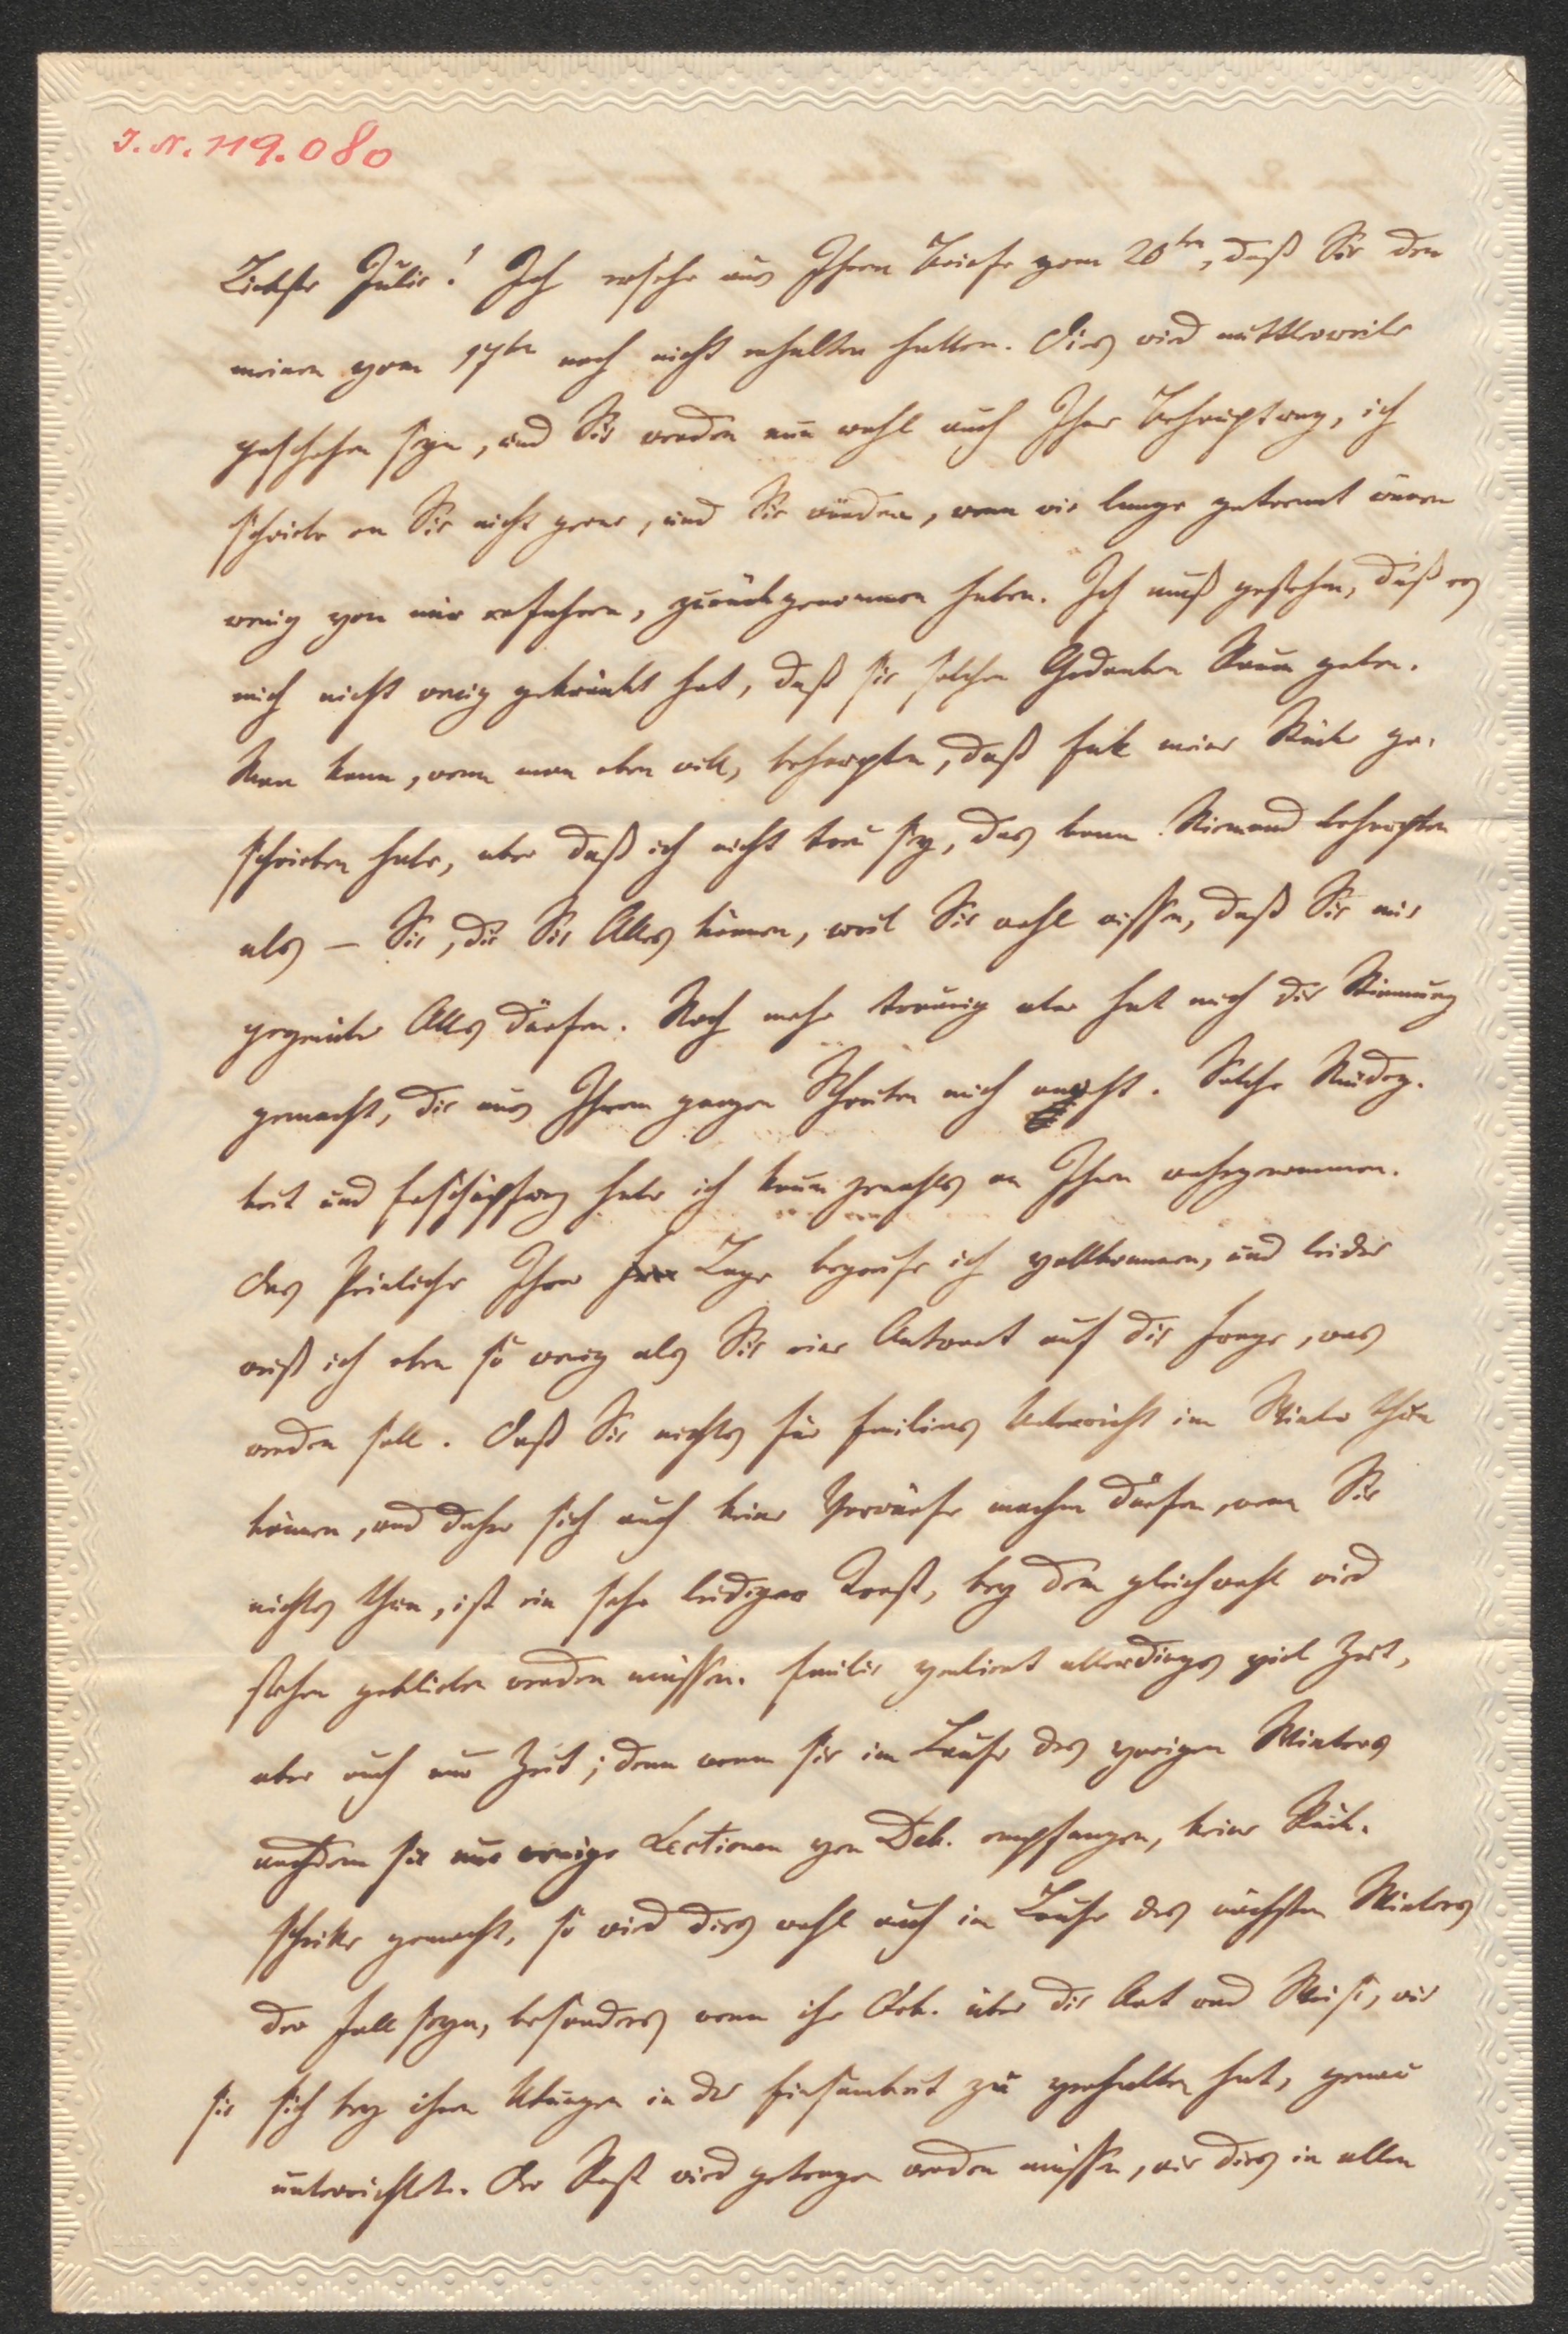 I. N. 119.080
Liebste Julie! Ich ersehe aus Ihrem Briefe vom 20ten, daß Sie den
meinen vom 17ten noch nicht erhalten hatten. Dies wird mittlerweile
geschehen seyn, und Sie werden nun wohl auch Ihre Behauptung, ich
schriebe an Sie nicht gerne, und Sie würden, wenn wir lange getrennt wären
wenig von mir erfahren, zurückgenommen haben. Ich muß gestehen, daß es
mich nicht wenig gekränkt hat, daß sie solchen Gedanken Raum geben.
Man kann, wenn man eben will, behaupten, daß meine Stücke ge-
schrieben habe, aber daß ich nicht treu sey, das kann Niemand behaupten
als – Sie, die Sie Alles können, weil Sie wohl wissen, daß Sie mir
gegenüber Alles dürfen. Noch mehr traurig aber hat mich die Stimmung
gemacht, die aus Ihrem ganzen Schreiben mich anspricht. Solche Müdig-
keit und Erschöpfung habe ich kaum jemahls an Ihnen wahrgenommen.
Das Peinliche Ihrer Lage begreife ich vollkommen, und leider
weiß ich eben so wenig als Sie eine Antwort auf die Frage, was
werden soll. Daß Sie nichts für Emiliens Unterricht im Winter thun
können, und daher sich auch keine Vorwürfe machen dürfen, wenn Sie
nichts thun, ist ein sehr leidiger Trost, bey dem gleichwohl wird
stehen geblieben werden müssen. Emilie verliert allerdings viel Zeit,
aber auch nur Zeit; denn wenn sie im Laufe des vorigen Winters
nachdem sie nur wenige Lectionen von Deb. empfangen, keine Rück-
schritte gemacht, so wird dies wohl auch im Laufe des nächsten Winters
der Fall seyn, besonders wenn ihr Deb. über die Art und Weise, wie
sie sich bey ihren Übungen in der Einsamkeit zu verhalten hat, genau
unterrichtet. Der Rest wird getragen werden müssen, wie dies in allen